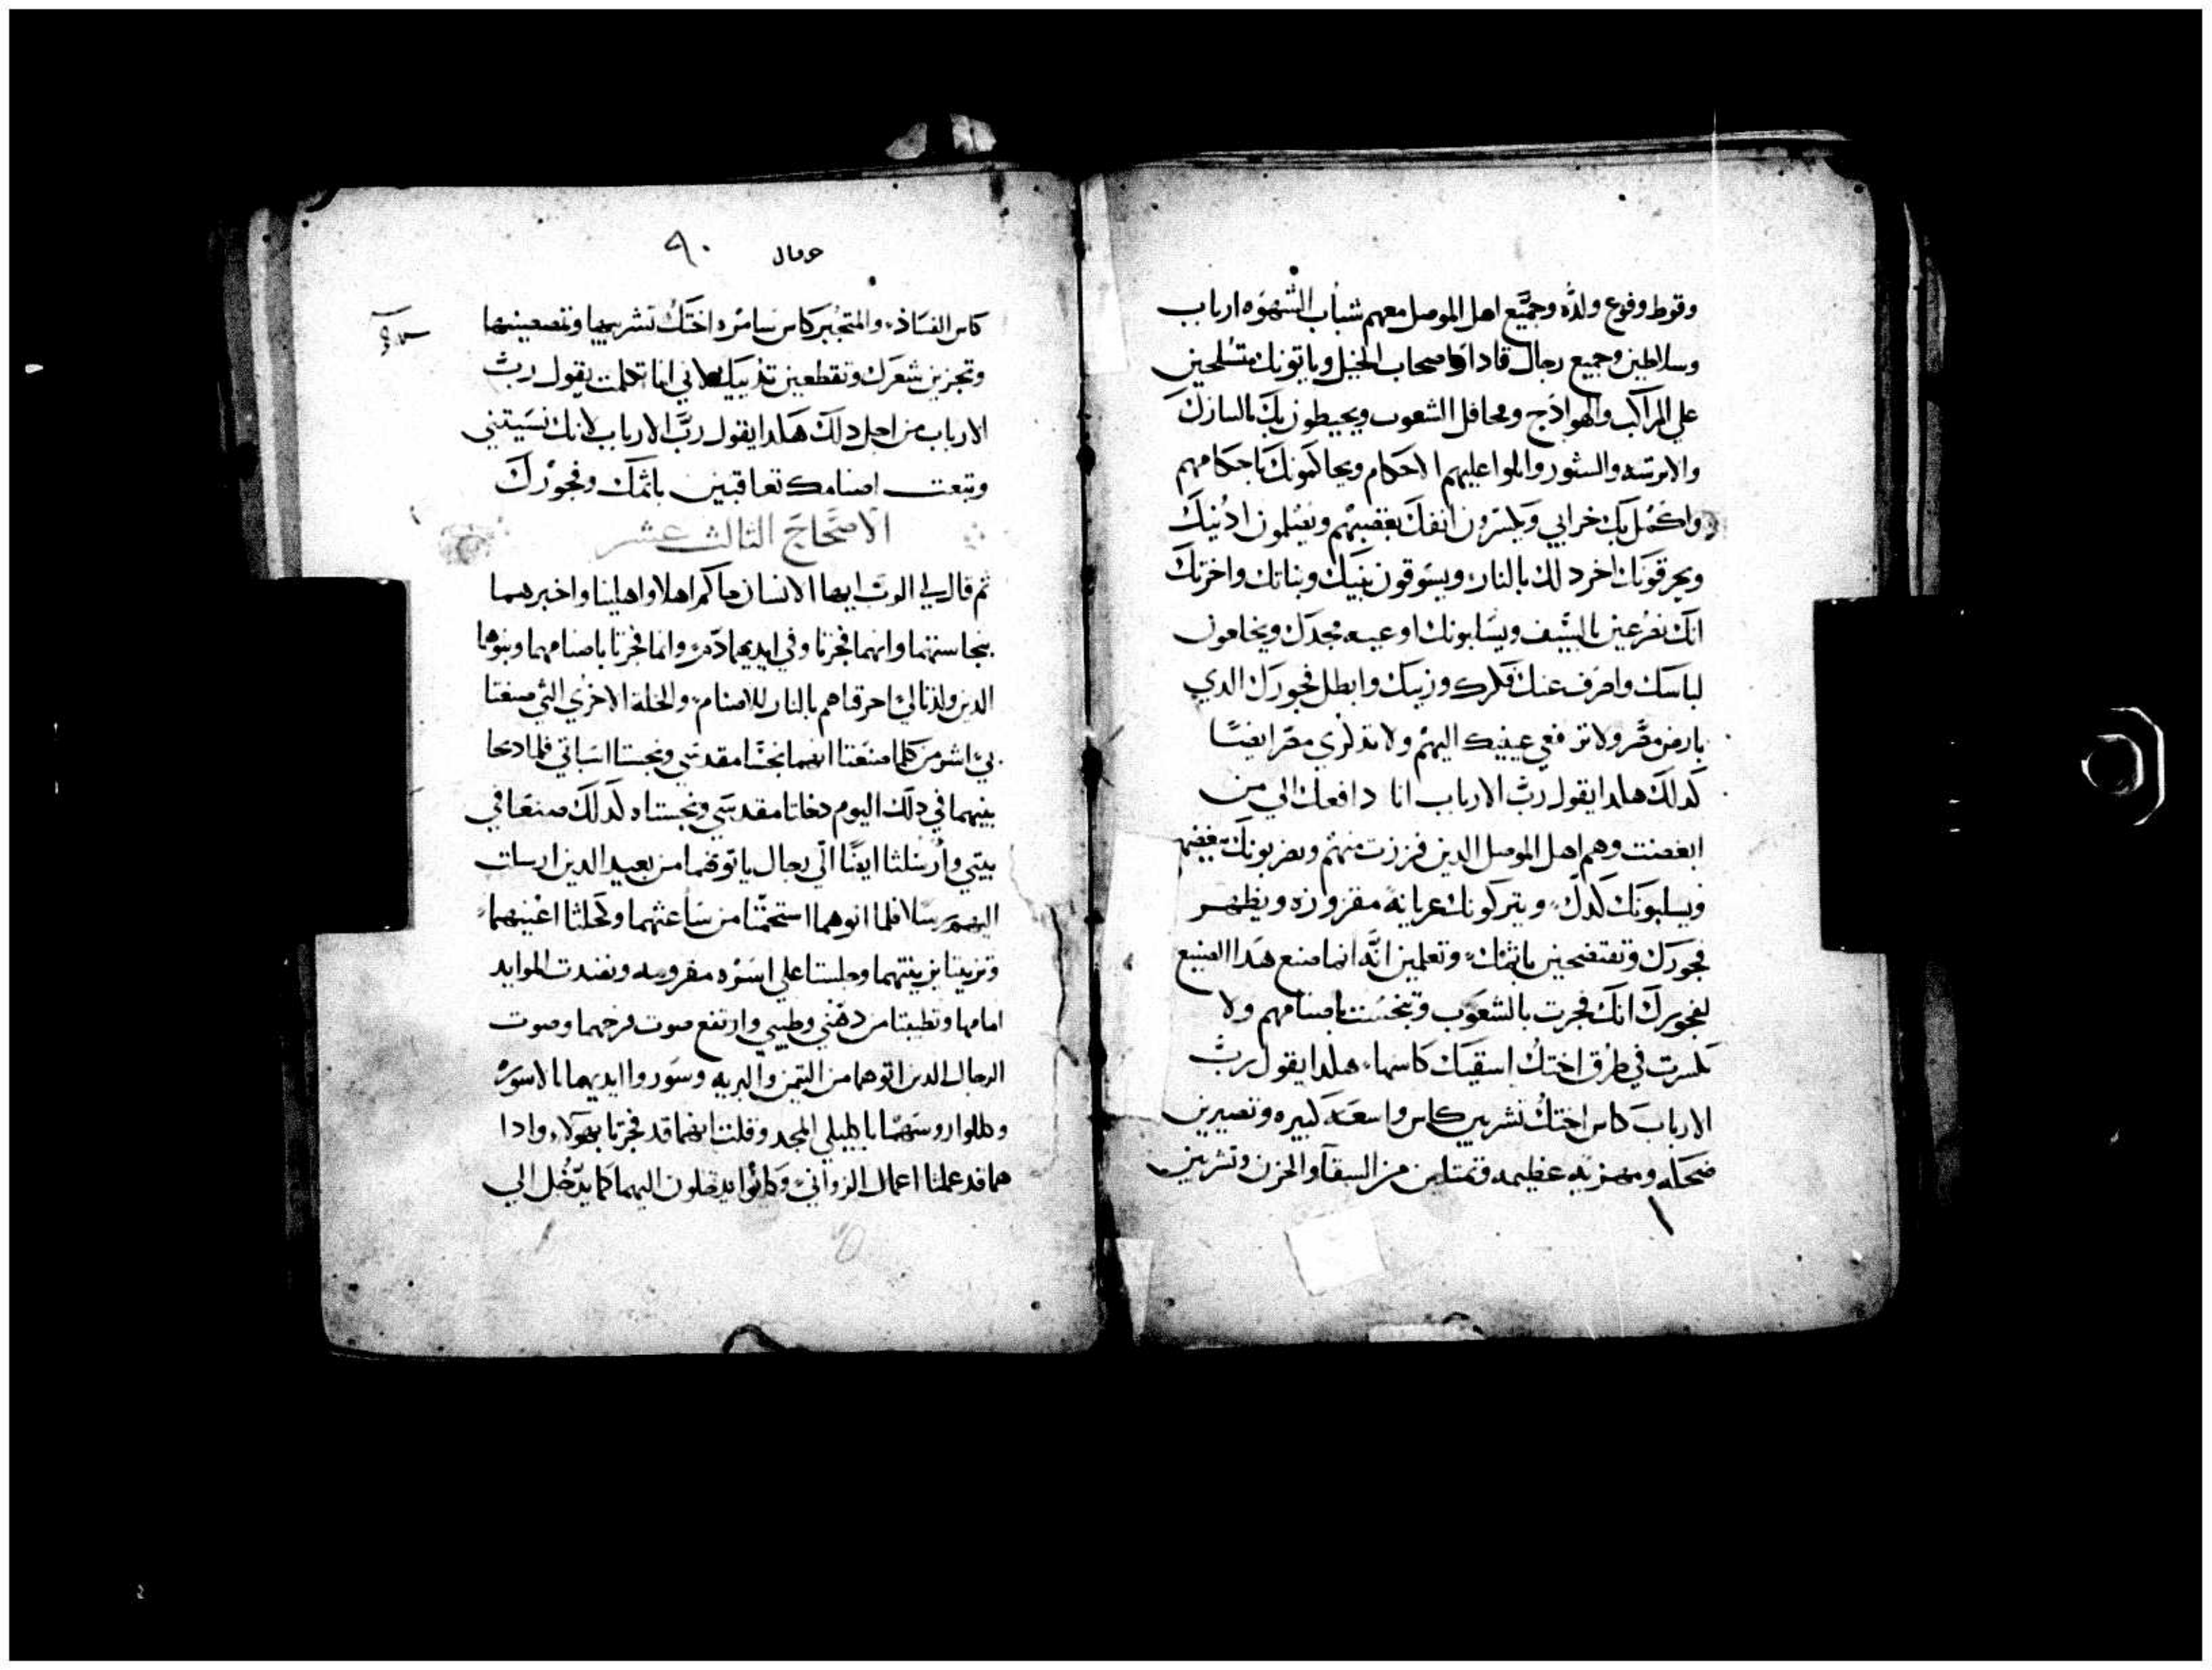 وقوط وفوع ولده وجميع اهل الموصل معهم شباب الشهوه ارباب
وسلاطين وجميع رجال قادا اصحاب الخيل وياتونك متسلحين
علي المراكب والهوادج ومحافل الشعوب ويحيطون بك بالسازك
والاترسه والشور واملوا عليهم الاحكام ويحاكمونك باحكامهم
واكمل بك خرابي ويلسرون انفك بغضبهم ويصلمون ادنيك
ويحرقونك اخر دلك بالنار ويسوقون بنيك وبناتك واخرتك
انك تفزعين بالسيف ويسلبونك اوعيه مجدك ويخلعون
لباسك واصرف عنك فكرك وزينك وابطل فجورك الدي
بارض مصر ولا ترفعي عينيك اليهم ولا تدكري مصر ايضا
كدلك هكدا يقول رب الارباب انا دافعك الي من
ابغضت وهم اهل الموصل الدين فززت منهم ويضربونك بغضبهم
ويسلبونك كدك ويتركونك عريانه مفزوزه ويظهر
فجورك وتفتضحين باثمك وتعلمين انه انما صنع هدا الصنيع
لفجورك انك فجرت بالشعوب وتنجست باصنامهم ولا
سرت في طرق اختك اسقيك كاسها هكدا يقول رب
الارباب كاس اختك تشربين كاس واسعه كبيره وتصيرين
ضحكه ومهزيه عظيمه وتمتلين من السقا والحزن وتشربين
حزقيال ٩٠
كاس الفساد والمتجبر كاس سامره اختك تشربيها وتصعينها
وتجزين شعرك وتقطعين تدييك لاني انا تكلمت يقول رب
الارباب من اجل دلك هكدا يقول رب الارباب لانك نسيتني
وتبعت اصنامك تعاقبين باثمك وفجورك
الاصحاح الثالث عشر
ثم قال لي الرب ايها الانسان حاكم اهلا واهليبا واخبرهما
بنجاستهما وانهما فجرتا وفي ايديهما دم وانما فجرتا باصنامهما وبنوهما
الدين ولدتا لي احرقاهم بالنار للاصنام والخلة الاخري التي صنعتا
بي اشر من كلما صنعتا انهما نجستا مقدسي ونجستا اسباتي فلما دبحا
بنيهما في دلك اليوم دخلتا مقدسي ونجستاه كدلك صنعتا في
بيتي وارسلتا ايضا الي رجال ياتوهما من بعيد الدين ارسلت
اليهم رسلا فلما اتوهما استحمتا من ساعتهما وكحلتا اعينهما
وتزينتا بزينتهما وجلستا علي اسره مفروسه ونضدت الموايد
امامها وتطيبتا من دهني وطيبي وارتفع صوت فرحهما وصوت
الرجال الدين اتوهما من التيمن والبريه وسوروا ايديهما بالاسوره
وكللوا روسهما باكليلي المجد وقلت انهما قد فجرتا بهولاء وادا
هما قد عملتا اعمال الزواني وكانوا يدخلون اليهما كما يدخل الي